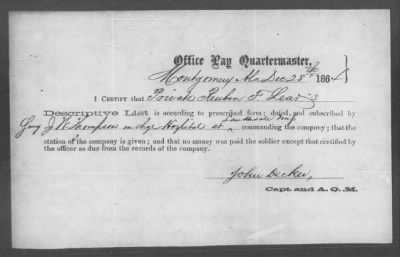 Office Pay Quartermaster,
Montgomery Ala Dec 28th 1864
I CERTIFY that Private Reuben F. Lear's
Descriptive List is according to prescribed form; dated, and subscribed by
J W Thompson in chge Hospital at commanding the company; that the
station of the company is given; and that no money was paid the soldier except that certified
by the officer as due from the records of the company.
John Decker,
Capt. and A. Q. M.